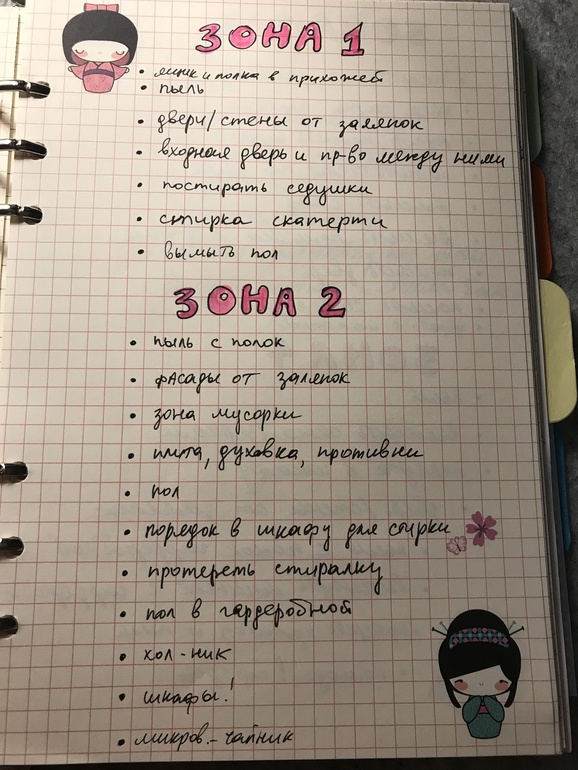 ЗОНА 1
• ящик и полка в прихожей
• пыль
• двери/стены от заляпок
• входная дверь и пр-во между ними
• постирать седушки
• стирка скатерти
• вымыть пол
ЗОНА 2
• пыль с полок
• фасады от заляпок
• зона мусорки
• плита, духовка, противни
• пол
• порядок в шкафу для стирки
• протереть стиралку
• пол в гардеробной
• хол-ник
• шкафы!
• микров.- чайник